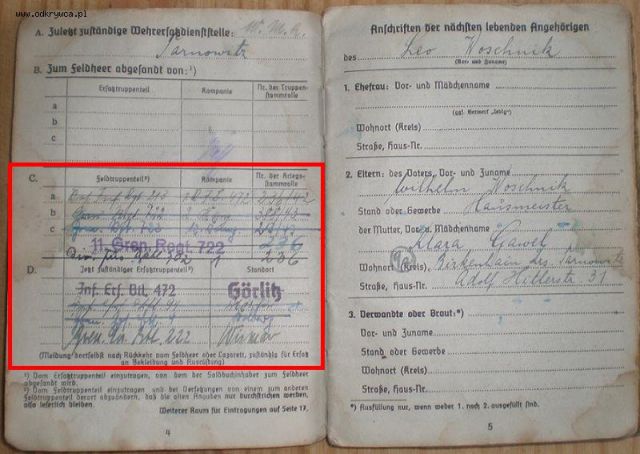 www.odkrywca.pl
A. Zuletzt zuständige Wehrersatzdienststelle: W. M. A.
Tarnowitz
B. Zum Feldheer abgesandt von:¹)
Ersatztruppenteil Kompanie Nr. der Truppen-
stammrolle
a
b
c
C. Feldtruppenteil²) Kompanie Nr. der Kriegs-
stammrolle
a
b
c
11. Gren. Regt. 722
236
D. Jetzt zuständiger Ersatztruppenteil²) Standort
Inf. Ers. Btl. 472 Görlitz
222 Wismar
(Meldung dortselbst nach Rückkehr vom Feldheer oder Lazarett, zuständig für Ersatz
an Bekleidung und Ausrüstung)
¹) Vom Ersatztruppenteil einzutragen, von dem der Soldbuchinhaber zum Feldheer
abgesandt wird.
²) Vom Feldtruppenteil einzutragen und bei Versetzungen von einem zum anderen
Feldtruppenteil derart abzuändern, daß die alten Angaben nur durchstrichen werden,
also leserlich bleiben.
Weiterer Raum für Eintragungen auf Seite 17.
4
Anschriften der nächsten lebenden Angehörigen
des Leo Woschnik
(Vor- und Zuname)
1. Ehefrau: Vor- und Mädchenname
(ggf. Vermerk „ledig")
Wohnort (Kreis)
Straße, Haus-Nr.
2. Eltern: des Vaters, Vor- und Zuname
Wilhelm Woschnik
Stand oder Gewerbe Hausmeister
der Mutter, Vor- u. Mädchenname
Klara Gawell
Wohnort (Kreis) Birkenhain Krs. Tarnowitz
Straße, Haus-Nr. Adolf Hitlerstr. 31
3. Verwandte oder Braut:*)
Vor- und Zuname
Stand oder Gewerbe
Wohnort (Kreis)
Straße, Haus-Nr.
*) Ausfüllung nur, wenn weder 1. noch 2. ausgefüllt sind.
5